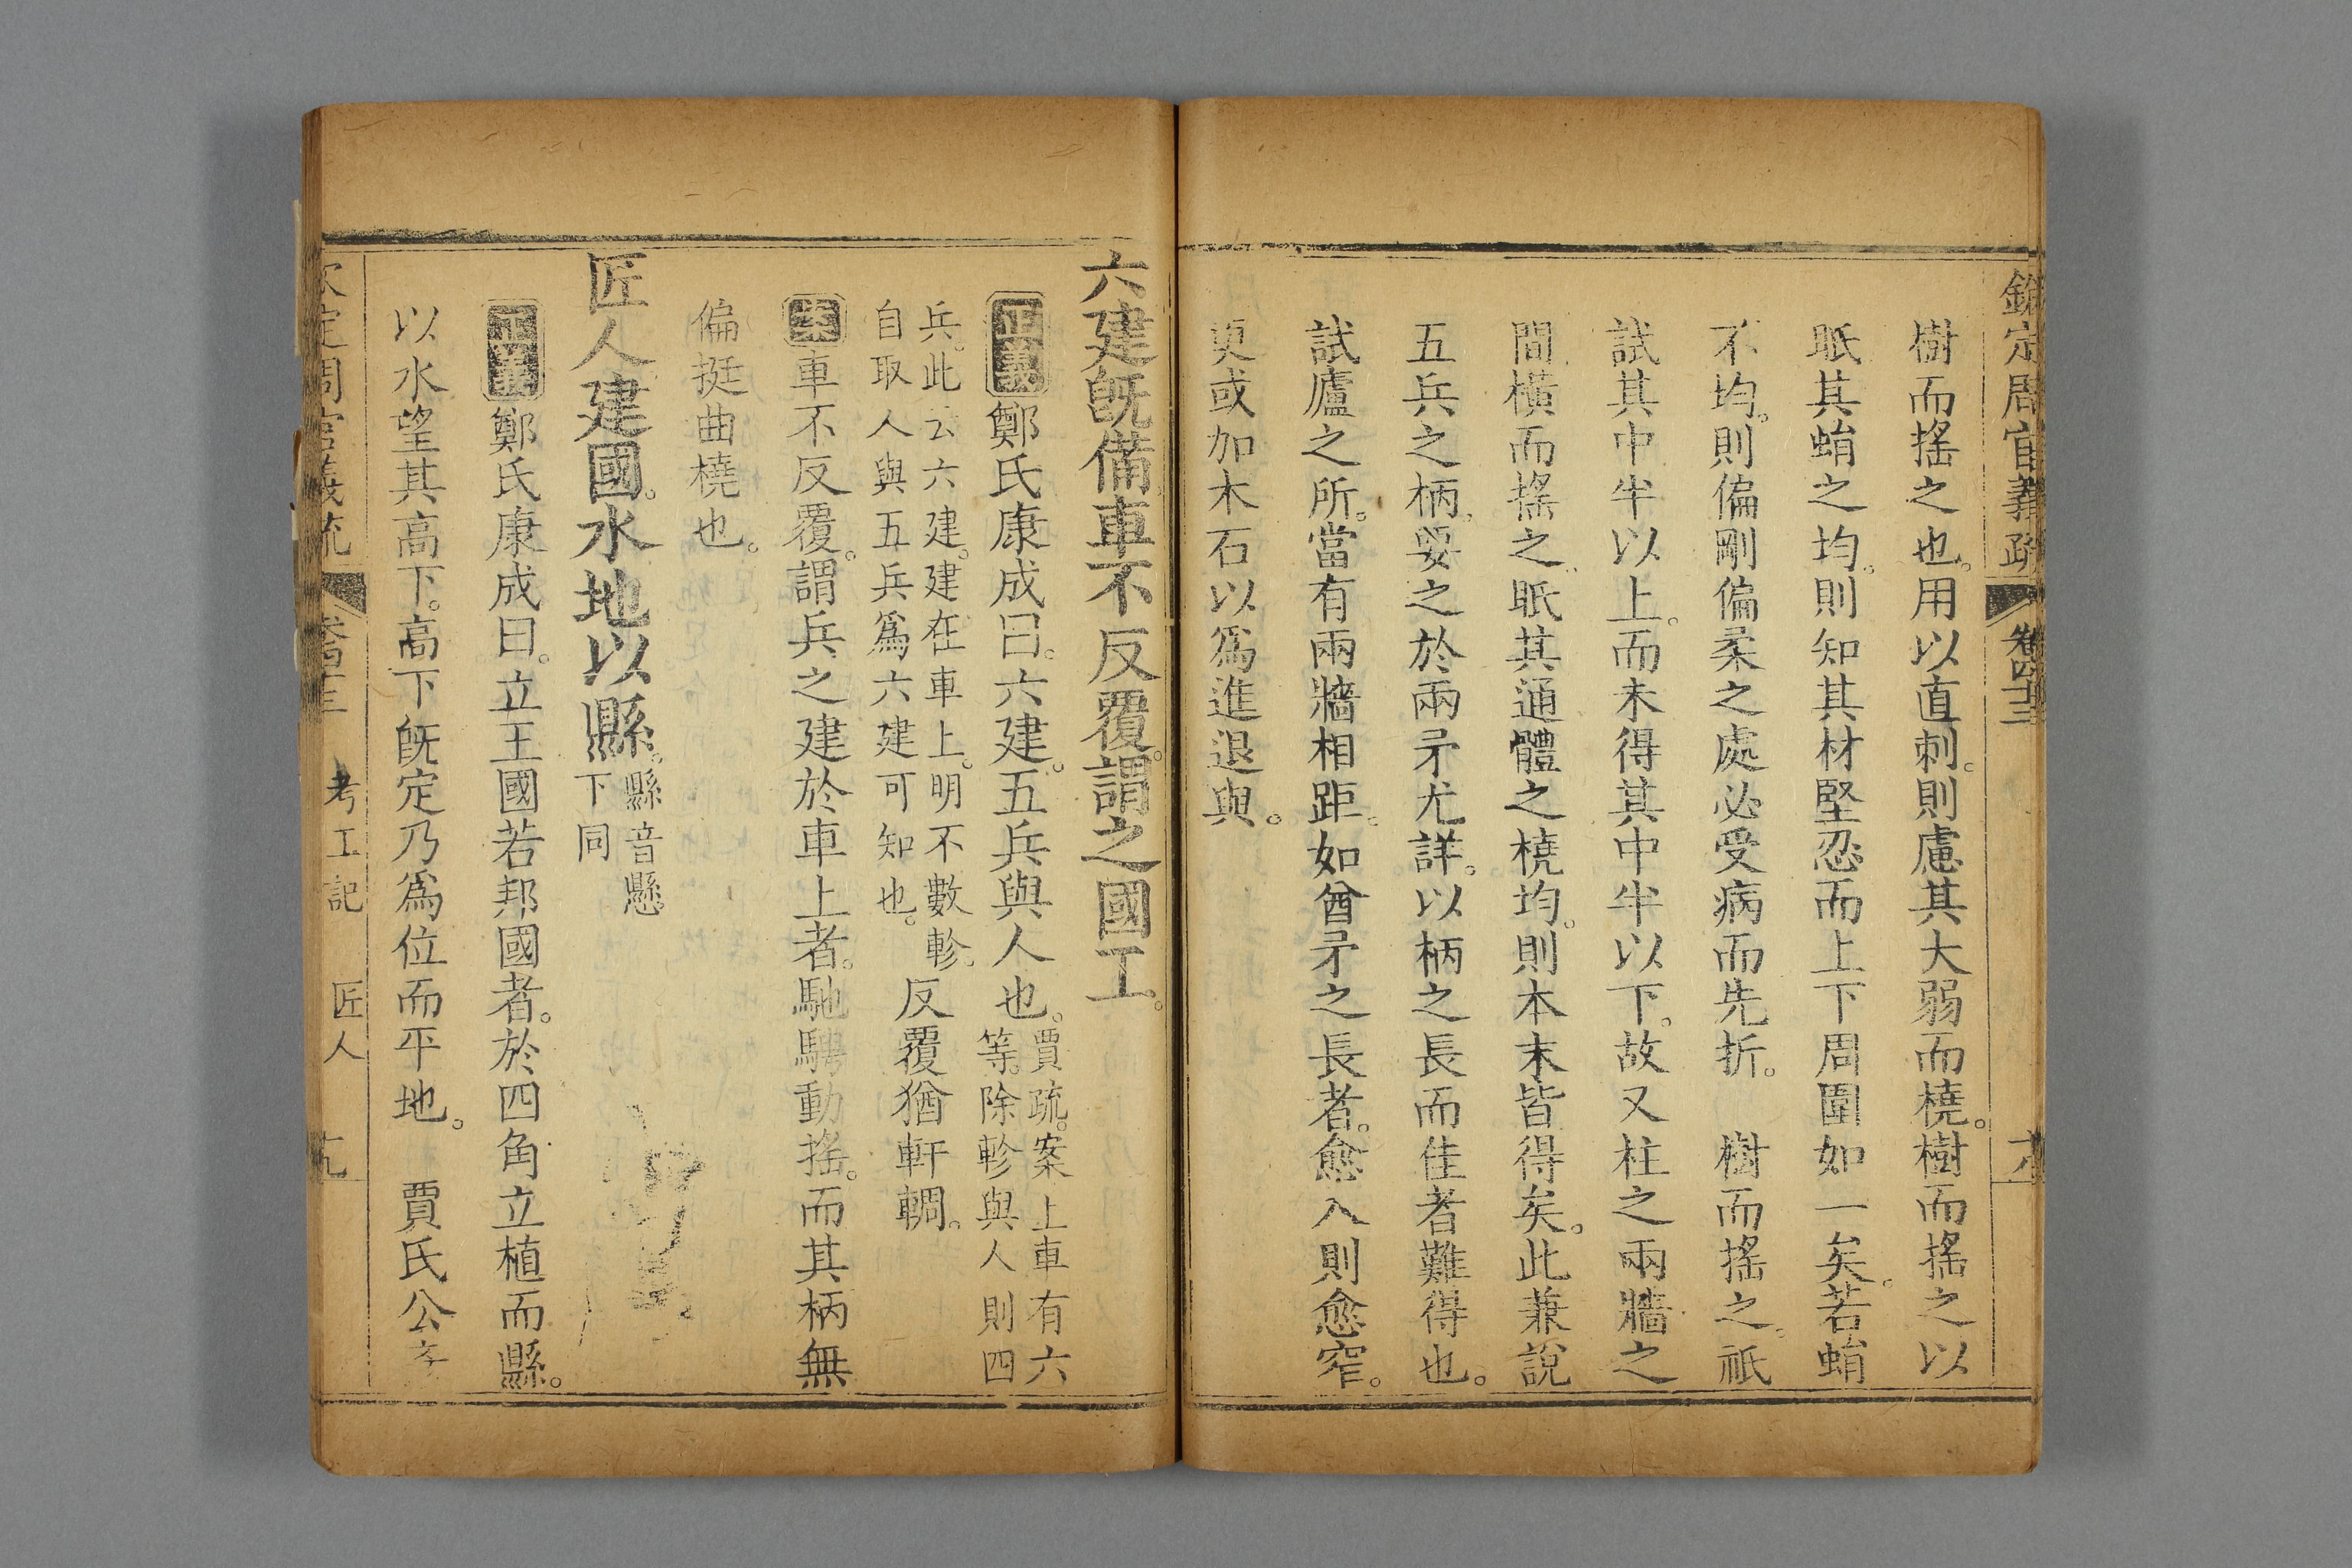 欽定周官義疏 卷四十三
樹而搖之也。用以直刺。則慮其大弱而橈。樹而搖之以
眡其蜎之均。則知其材堅忍而上下周圍如一矣。若蜎
不均。則偏剛偏柔之處必受病而先折。 樹而搖之。祇
試其中半以上。而未得其中半以下。故又柱之兩牆之
間橫而搖之。眡其通體之橈均。則本末皆得矣。此兼說
五兵之柄。要之於兩矛尤詳。以柄之長而佳者難得也。
試廬之所。當有兩牆相距。如酋矛之長者。愈入則愈窄。
更或加木石以爲進退與。
六建旣備。車不反覆。謂之國工。
正義鄭氏康成曰。六建。五兵與人也。賈疏。案上車有六
等。除軫與人則四
兵。此云六建。建在車上。明不數軫。
自取人與五兵爲六建可知也。反覆猶軒輖。
案車不反覆。謂兵之建於車上者。馳騁動搖。而其柄無
偏挺曲橈也。
匠人建國。水地以縣。縣音懸
下同
正義鄭氏康成曰。立王國若邦國者。於四角立植而縣。
以水望其高下。高下旣定乃爲位而平地。 賈氏公彥
欽定周官義疏 卷四十三 考工記 匠人